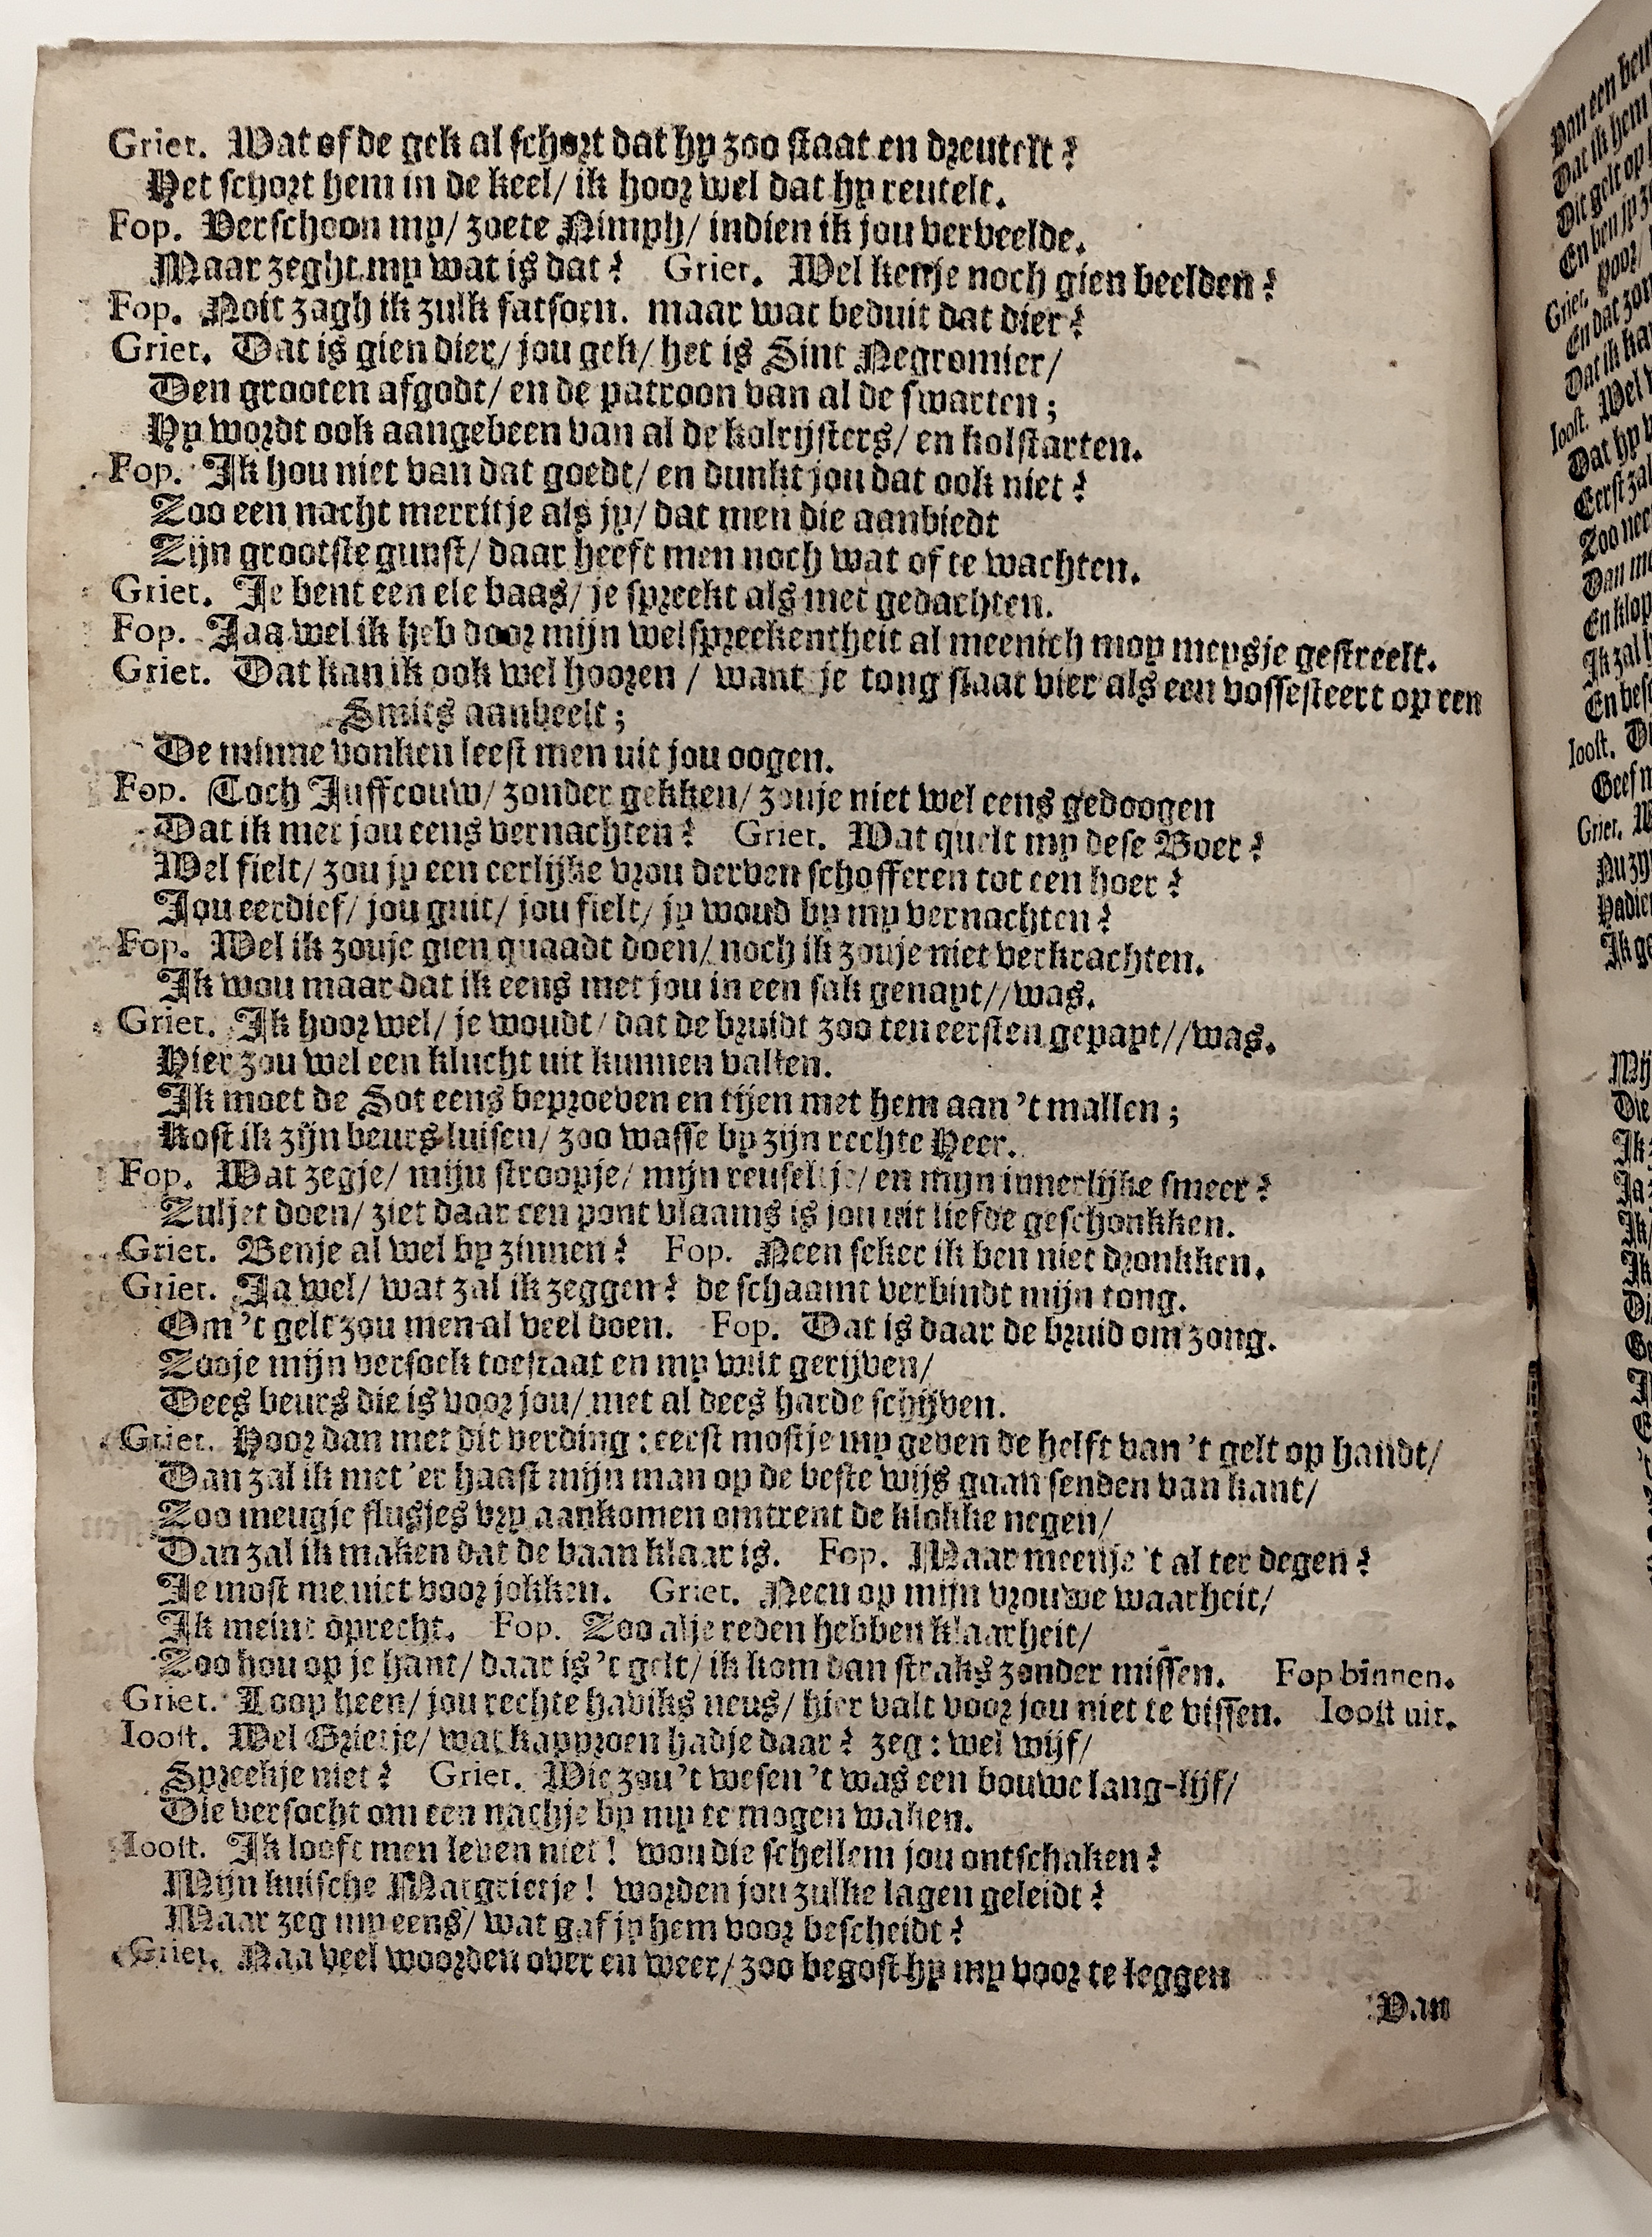 Griet. Wat of de gek al schort dat hy zoo staat en dreutelt?
Het schort hem in de keel/ ik hoor wel dat hy reutelt.
Fop. Verschoon my/ zoete Nimph/ indien ik jou verveelde.
Maar zeght my wat is dat? Griet. Wel kenje noch gien beelden?
Fop. Noit zagh ik zulk fatsoen. maar wat beduit dat dier?
Griet. Dat is gien dier/ jou gek/ het is Sint Negromier/
Den grooten afgodt/ en de patroon van al de swarten;
Hy wordt ook aangebeen van al de kolrijsters/ en kolstarten.
Fop. Ik hou niet van dat goedt/ en dunkt jou dat ook niet?
Zoo een nacht merritje als jy/ dat men die aanbiedt
Zijn grootste gunst/ daar heeft men noch wat of te wachten.
Griet. Je bent een ele baas/ je spreekt als met gedachten.
Fop. Jaa wel ik heb door mijn welspreekentheit al meenich moy meysje gestreelt.
Griet. Dat kan ik ook wel hooren / want je tong staat vier als een vossesteert op een
Smits aanbeelt;
De minne vonken leest men uit jou oogen.
Fop. Toch Juffrouw/ zonder gekken/ zouje niet wel eens gedoogen
Dat ik met jou eens vernachten? Griet. Wat quelt my dese Boer?
Wel fielt/ zou jy een eerlijke vrou derven schofferen tot een hoer?
Jou eerdief/ jou guit/ jou fielt/ jy woud by my vernachten?
Fop. Wel ik zouje gien quaadt doen/ noch ik zouje niet verkrachten.
Ik wou maar dat ik eens met jou in een sak genayt//was.
Griet. Ik hoor wel/ je woudt/ dat de bruidt zoo ten eersten gepayt//was.
Hier zou wel een klucht uit kunnen vallen.
Ik moet de Sot eens beproeven en tijen met hem aan 't mallen;
Kost ik zijn beurs luisen/ zoo wasse by zijn rechte Heer.
Fop. Wat zegje/ mijn stroopje/ mijn reuseltje/ en mijn innerlijke smeer?
Zuljet doen/ ziet daar een pont vlaams is jou uit liefde geschonkken.
Griet. Benje al wel by zinnen? Fop. Neen seker ik ben niet dronkken.
Griet. Ja wel/ wat zal ik zeggen? de schaamt verbindt mijn tong.
Om 't gelt zou men al veel doen. Fop. Dat is daar de bruid om zong.
Zooje mijn versoek toestaat en my wilt gerijven/
Dees beurs die is voor jou/ met al dees harde schijven.
Griet. Hoor dan met dit verding: eerst mostje my geven de helft van 't gelt op handt/
Dan zal ik met 'er haast mijn man op de beste wijs gaan senden van kant/
Zoo meugje flusjes vry aankomen omtrent de klokke negen/
Dan zal ik maken dat de baan klaar is. Fop. Maar meenje 't al ter degen?
Je most me niet voor jokken. Griet. Neen op mijn vrouwe waarheit/
Ik meint oprecht. Fop. Zoo alje reden hebben klaarheit/
Zoo hou op je hant/ daar is 't gelt/ ik kom dan straks zonder missen. Fop binnen.
Griet. Loop heen/ jou rechte haviks neus/ hier valt voor jou niet te vissen. Ioost uit.
Ioost. Wel Grietje/ wat kapproen hadje daar? zeg: wel wijf/
Spreekje niet? Griet. Wie zou 't wesen 't was een bouwe lang-lijf/
Die versocht om een nachje by my te mogen waken.
Ioost. Ik looft men leven niet! wou die schellem jou ontschaken?
Mijn kuische Margrietje! worden jou zulke lagen geleidt?
Maar zeg my eens/ wat gaf jy hem voor bescheidt?
Griet. Naa veel woorden over en weer/ zoo begost hy my voor te leggen
Van